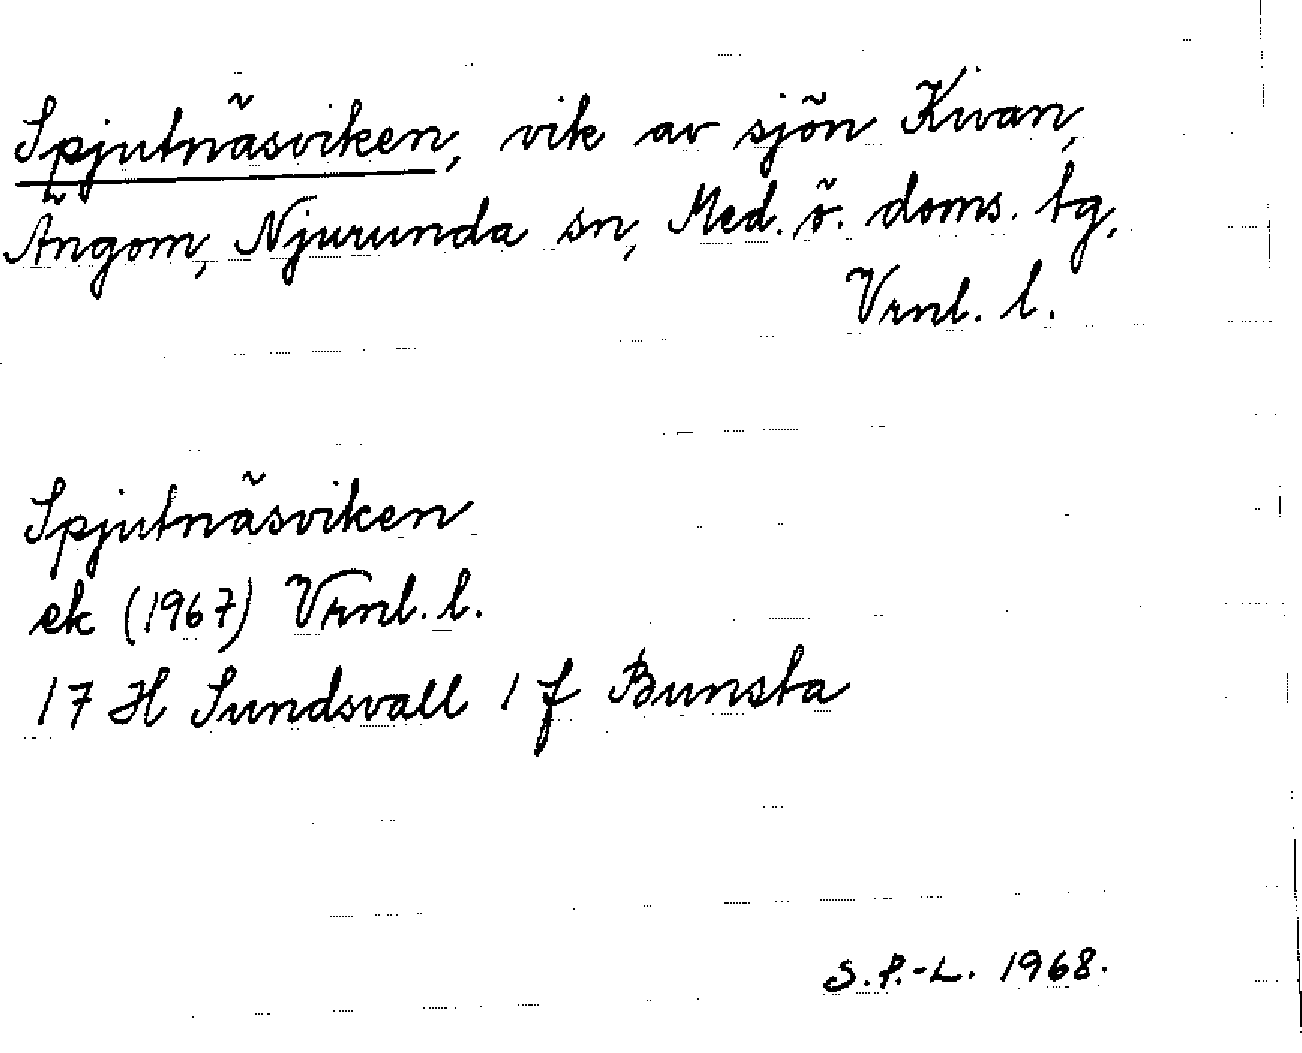 Spjutnäsviken, vik av sjön Kivan,
Ängom, Njurunda sn, Med. ö. doms. tg,
Vrnl. l.
Spjutnäsviken
ek (1967) Vrnl. l.
17 H Sundsvall 1 f Bunsta
S.P.-L. 1968.